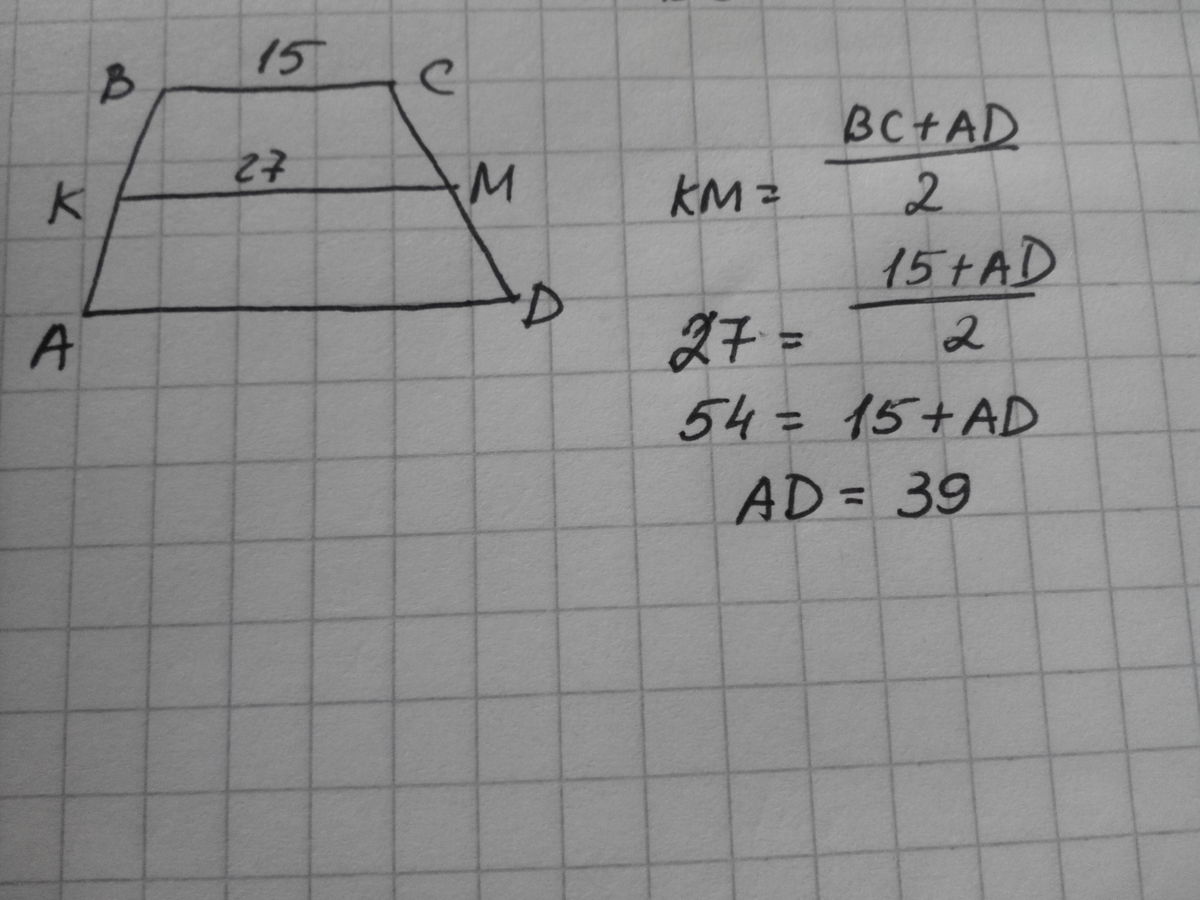 15
B C
27
K M
A D
KM = BC + AD / 2
27 = 15 + AD / 2
54 = 15 + AD
AD = 39